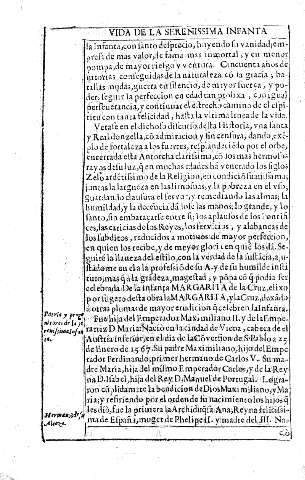 VIDA DE LA SERENISSIMA INFANTA
la Infanta, con santo desprecio, huyendo su vanidad, em-
presa de mas valor, le fama mas inmortal, y en menor
pompa, de mayor riesgo y ventura. Cinquenta años de
vitorias conseguidas de la naturaleza cō la gracia, ba-
tallas mudas, guerra en silencio, de mayor fuerça, y po-
der, seguir la perfeccion en edad tan prolixa, con igual
perseuerancia, y continuar el estrecho camino de el espi-
ritu con tanta felicidad, hasta la vltima linea de la vida.
Verase en el dichoso discurso desta Historia, vna santa
y Real donzella, cō admiracion y sin censura, dando exē-
plo de fortaleza a los fuertes, resplandeciēdo por el orbe,
encerrada esta Antorcha clarissima, cō los mas hermosos
rayos de su luz, q̄ en muchas edades hā venerado los siglos
Zelo ardētissimo de la Religion, en condiciō suauissima;
juntas la largueza en las limosnas, y la pobreza en el vso,
guardan, lo clausura el seruor, y remediando las almas; la
humildad, y la decencia dādole las manos; lo grande, y lo
santo, sin embaraçarse entre si; los aplausos de los Pontifi-
ces, las caricias de los Reyes, los seruicios, y alabanças de
los subditos, reducidos a motiuos de mayor perfeccion,
en quien los recibe, y de mayor gloria en quiē los dà. Se-
guiré la llaneza del estilo, con la verdad de la sustācia, aju-
stādome en ella a la professiō de su A. y de su humilde insti-
tuto; mas q̄ a la grādeza, magestad, y pōpa cō q̄ podia ser
celebrada. De la infanta MARGARITA de la Cruz, elixo
por sugeto desta obra la MARGARITA, y la Cruz, dexādo
a otras plumas de mayor erudicion q̄ celebren la Infanta.
Fue hija del Emperador Maximiliano II. y de la Empe-
ratriz D. Maria: Nacio en la ciudad de Viena, cabeça de el
Austria inferior, en el dia de la Cōuersion de S. Pablo a 25
de Enero de 1567. Su padre Maximiliano, hijo del Empe-
rador Ferdinando, primer hermano de Carlos V. Su ma-
dre Maria, hija del mismo Emperador Carlos, y de la Rey-
na D. Isabel, hija del Rey D. Manuel de Portugal. Logra-
ron cūplidamente la bendicion de Dios Maximiliano, y Ma-
ria, y refiriendo por el orden de su nacimiento los hijos q̄
les diò, fue la primera la Archiduqsa Ana, Reyna felicissi-
ma de España, muger de Phelipe II. y madre del III. No
Patria y pro-
genitores de la se-
renissima Infan-
ta.
Hermanos de su
Alteza.